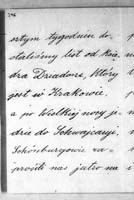 szłym tygodniu do-
staliśmy list od Księ-
dra Dziadonia, Który
jest w Krakowie.
a po Wielkiej nocy je-
dzie do Szwajcaryi.
Schönburgowie za-
prosili nas jutro na